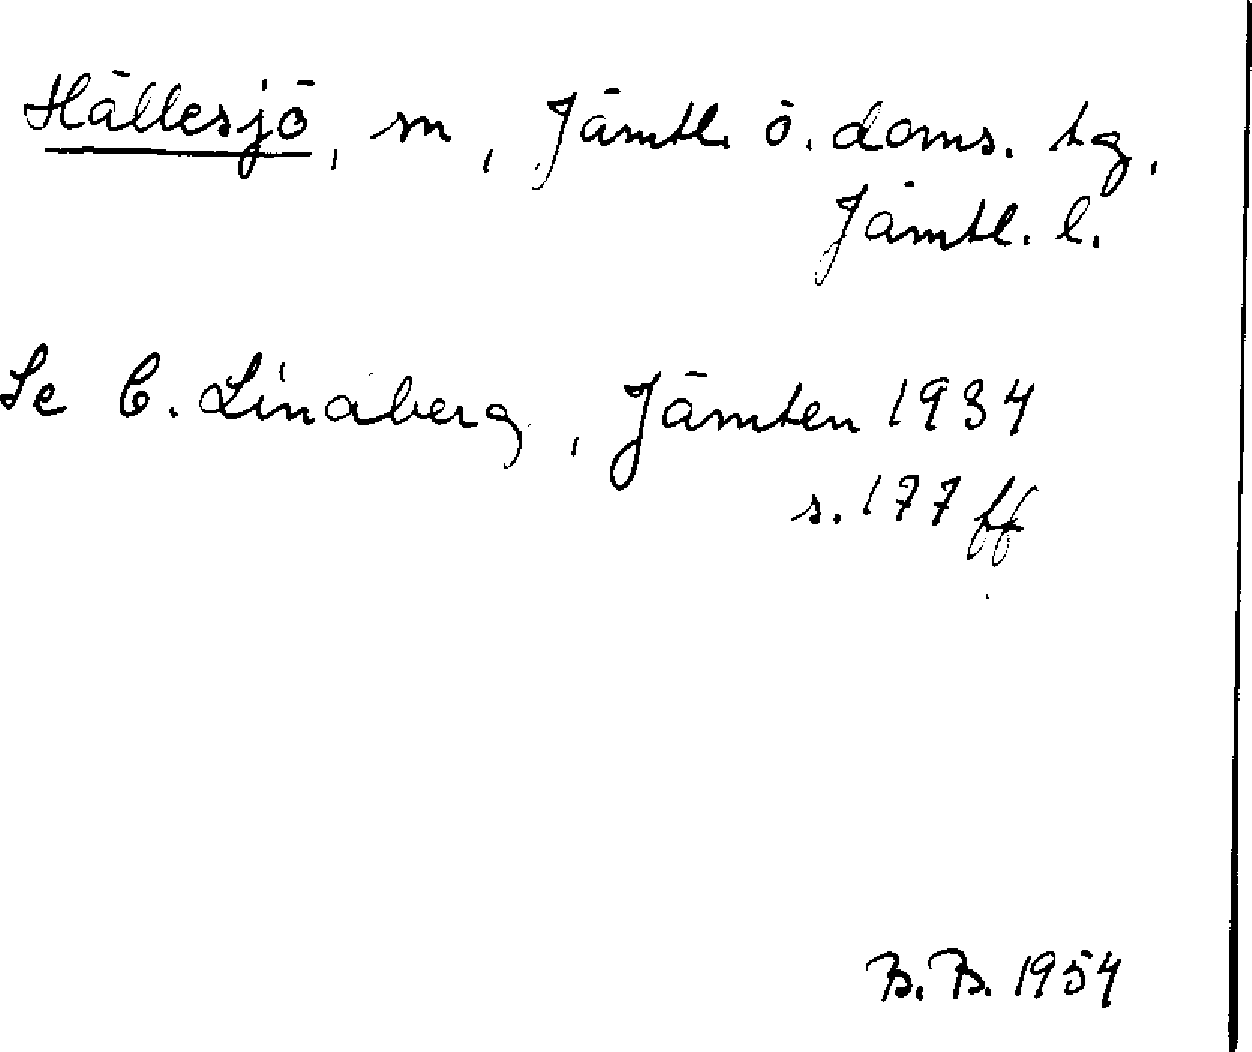 Hällesjö, sn, Jämtl. ö. doms. tg,
Jämtl. l.
Se C. Lindberg, Jämten 1934
s. 177 ff
B. B. 1954